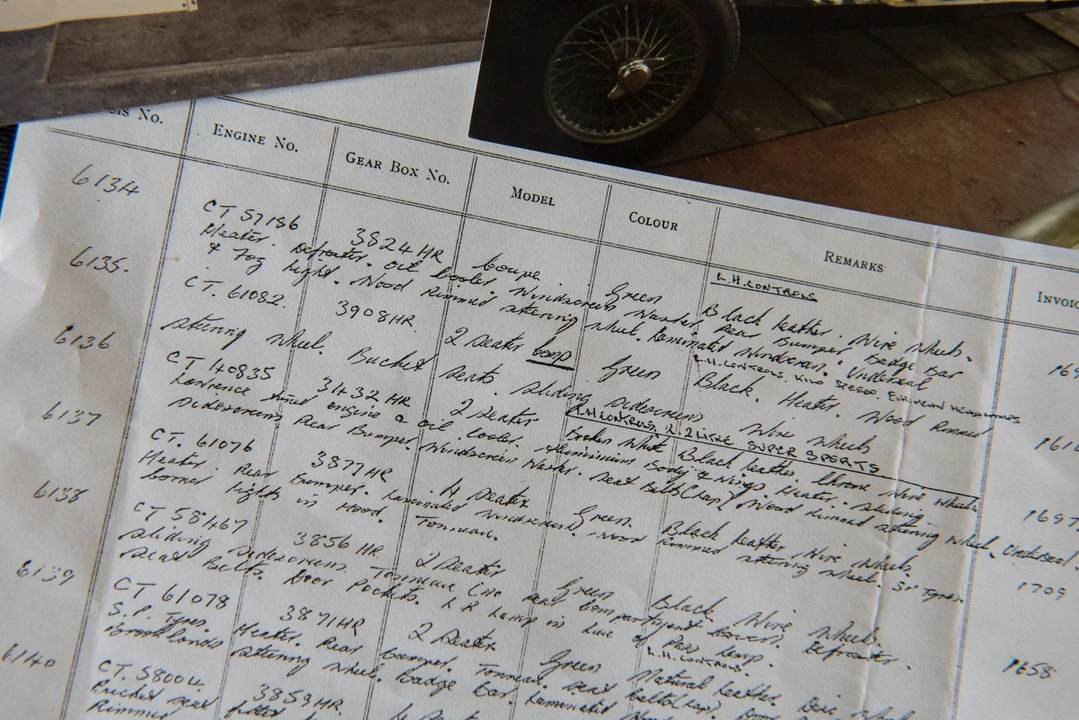 is No. Engine No. Gear Box No. Model Colour Remarks Invoic
6134 L.H. CONTROLS
CT 57186 3824 HR Coupe. Green Black leather. Wire wheels.
Heater. Defroster. Oil Cooler. Windscreen Washer. Rear Bumper Badge Bar 169
& Fog light. Wood Rimmed steering wheel. Laminated Windscreen. Underseal
6135. L.H. CONTROLS,
CT. 61082. 3908 HR. 2 Seater Comp Green Black. Heater. Wood Rimmed
steering wheel. Bucket seats. sliding sidescreens Wire Wheels 161
6136 L.H. CONTROLS, 2.2 LITRE SUPER SPORTS
CT 40835 3432 HR 2 Seater Broken White Black leather. Chrome Wire Wheels
Lawrence tuned engine & oil Cooler. Aluminium Body & Wings. Heater. sliding 1697
sidescreens Rear Bumper. Windscreen Washer. Seat Belts (Lap) Wood rimmed steering wheel. Underseal.
6137
CT. 61076 3877 HR 4 Seater Green. Black leather. Wire Wheels
Heater. Rear Bumper. Laminated Windscreen. Wood Rimmed steering wheel. S.P. Tyres. 1709
lights in Hood. Tonneau.
6138
CT 58467 3856 HR 2 Seater Green Black. Wire Wheels.
sliding sidescreens. Tonneau. rear compartment cover. Defroster.
seat belts. Door Pockets. L.R. Lamp in lieu of Pass lamp. 1658
6139 L.H. CONTROLS.
CT 61078 3871 HR 2 Seater Green Natural leather.
S.P. Tyres. Heater. Rear Bumper. Tonneau. seat belts (lap).
Brooklands steering wheel. Badge Bar. Laminated
6140
CT. 58004 3859 HR.
Bucket seat fitted
Rimmed